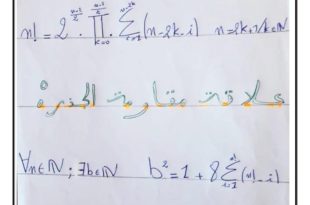 n! = 2^{\frac{n-1}{2}} \cdot \prod_{k=0}^{\frac{n-1}{2}} \cdot \sum_{i=1}^{n-2k} (n-2k-i) n=2k+1/k∈ℕ
علاقة مقاومة الجذرة
∀n∈ℕ ; ∃b∈ℕ b² = 1 + 8 \sum_{i=1}^{n!} (n!-i)